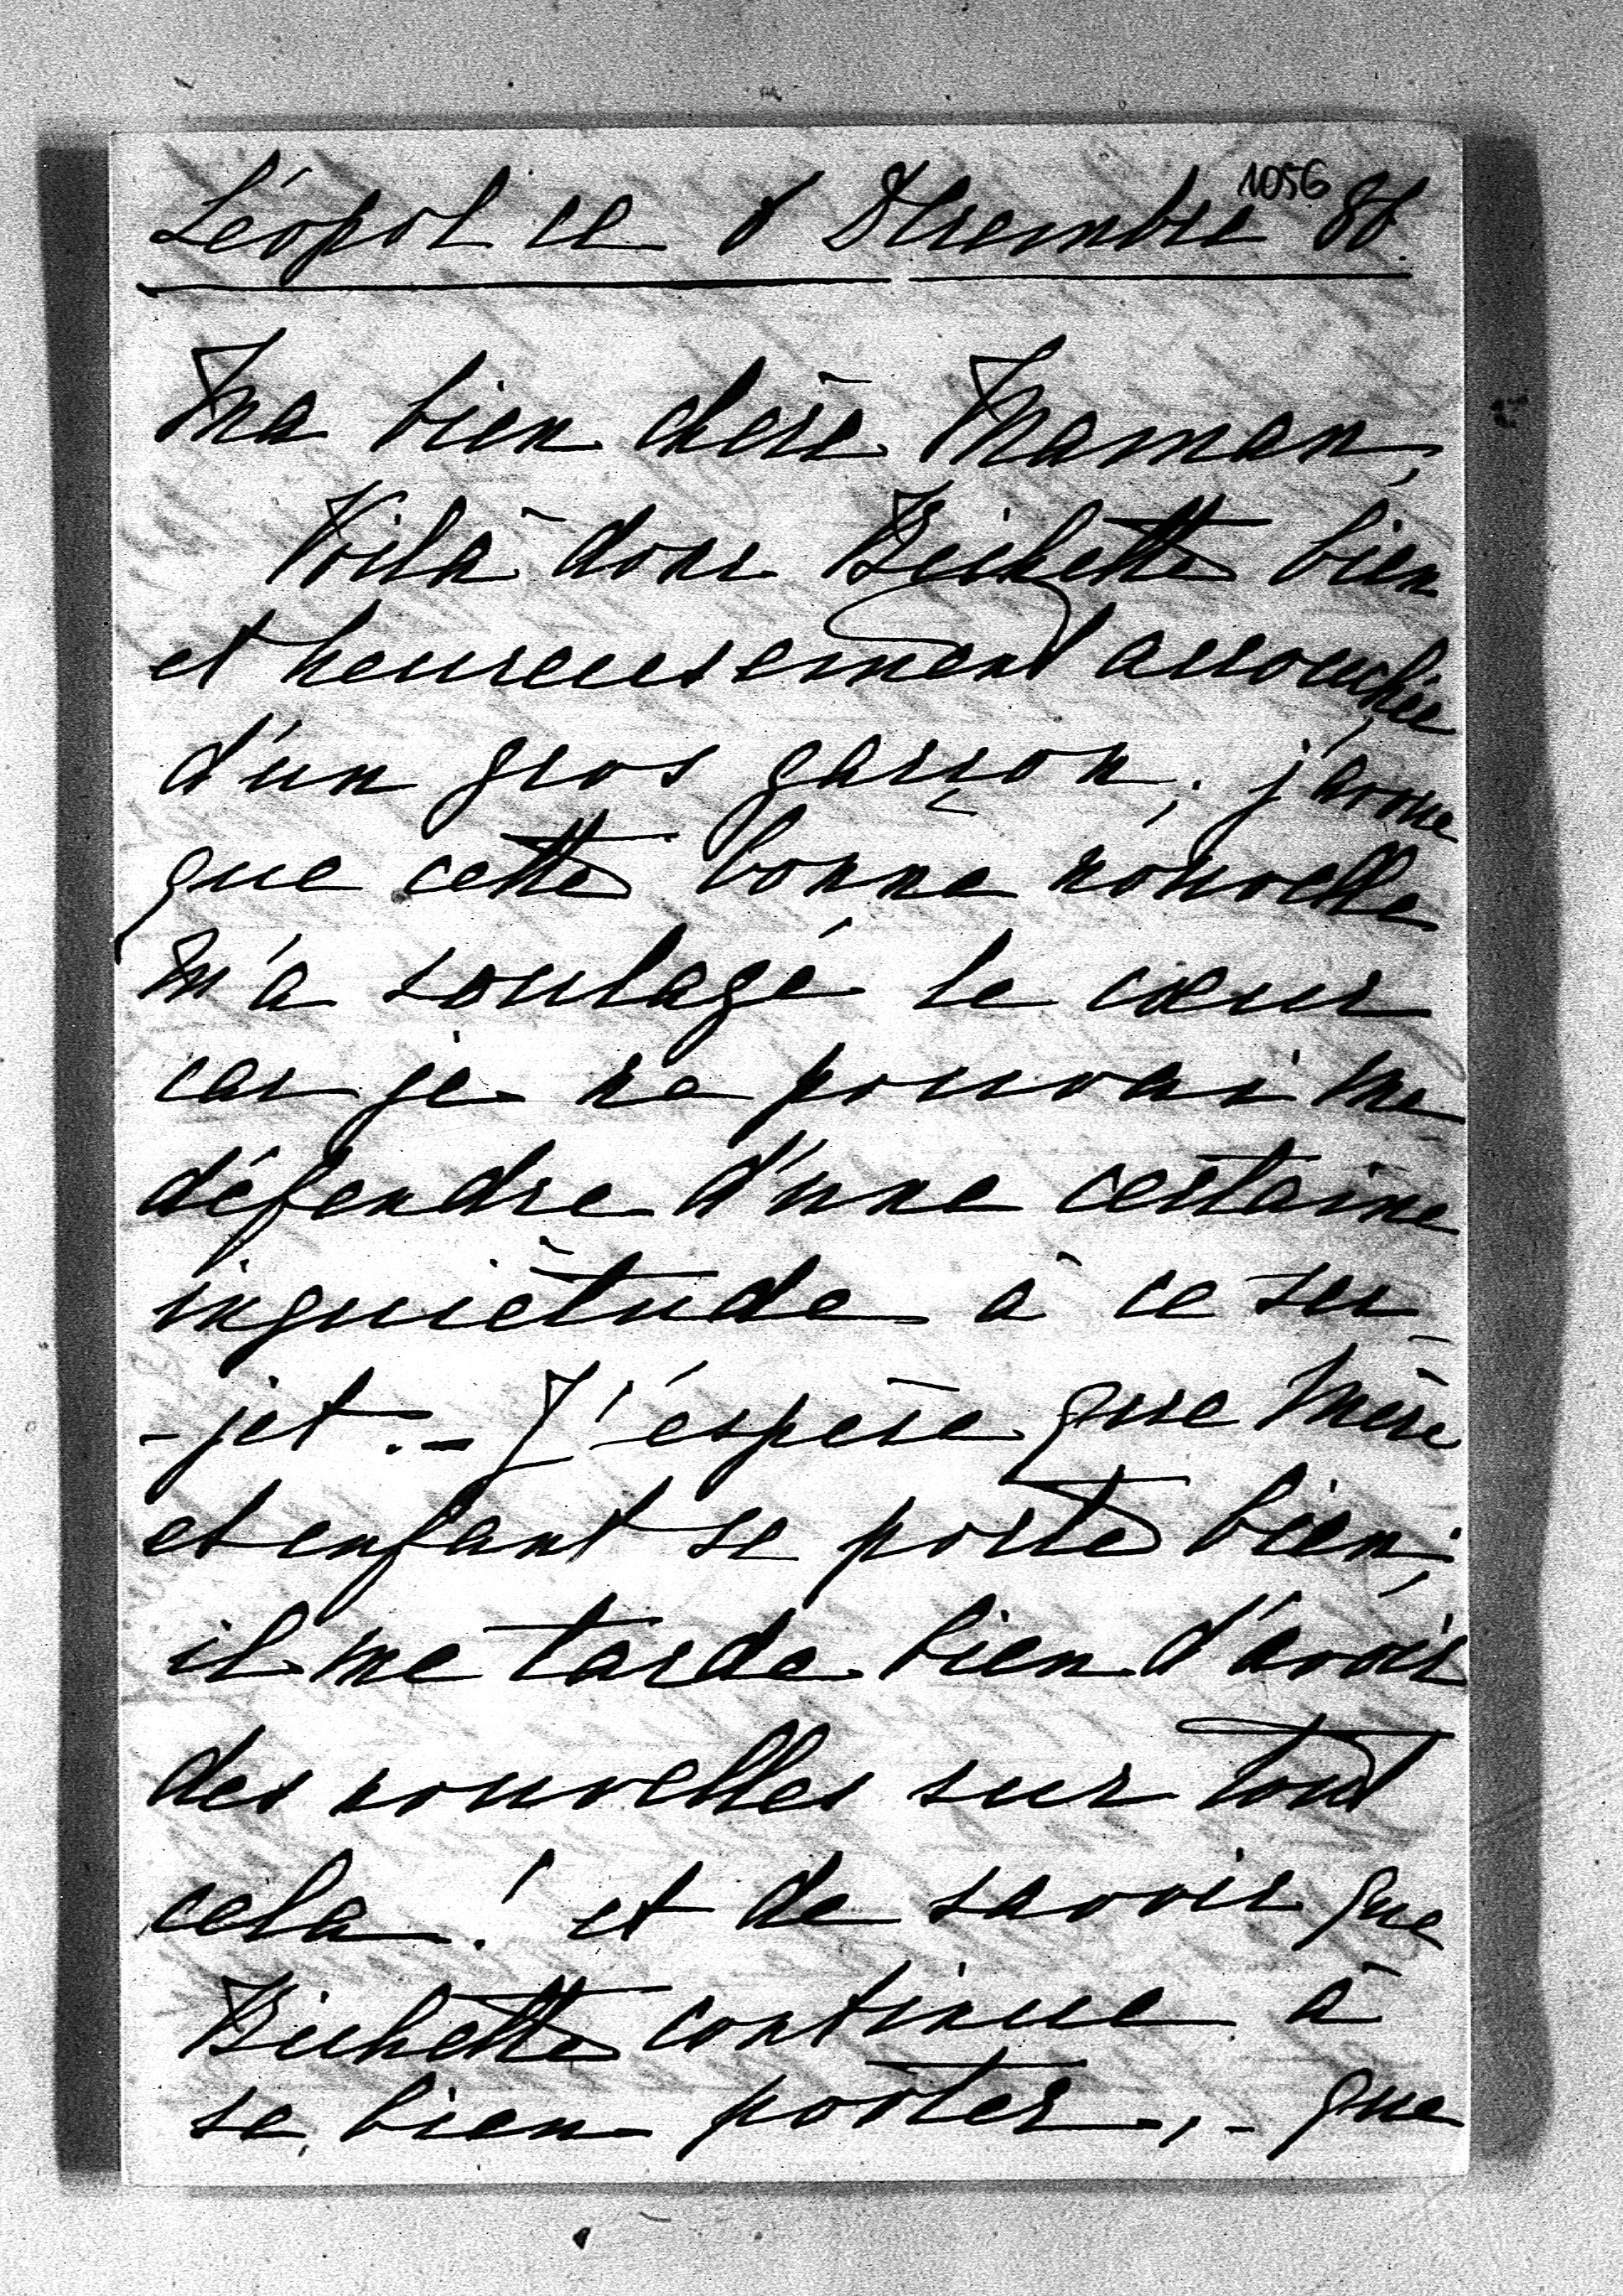 1056
Léopol ce 8 Décembre 86.
Ma bien chère Maman,
Voilà donc Bichette bien
et heureusement accouchée
d'un gros garçon; j'avoue
que cette bonne nouvelle
m'a soulagé le cœur
car je ne pouvai me
défendre d'une certaine
inquiètude à ce su-
-jet.- J'éspère que Mère
et enfant se porte bien;
il me tarde bien d'avoir
des nouvelles sur tout
cela! et de savoir que
Bichette continue à
se bien porter,- que